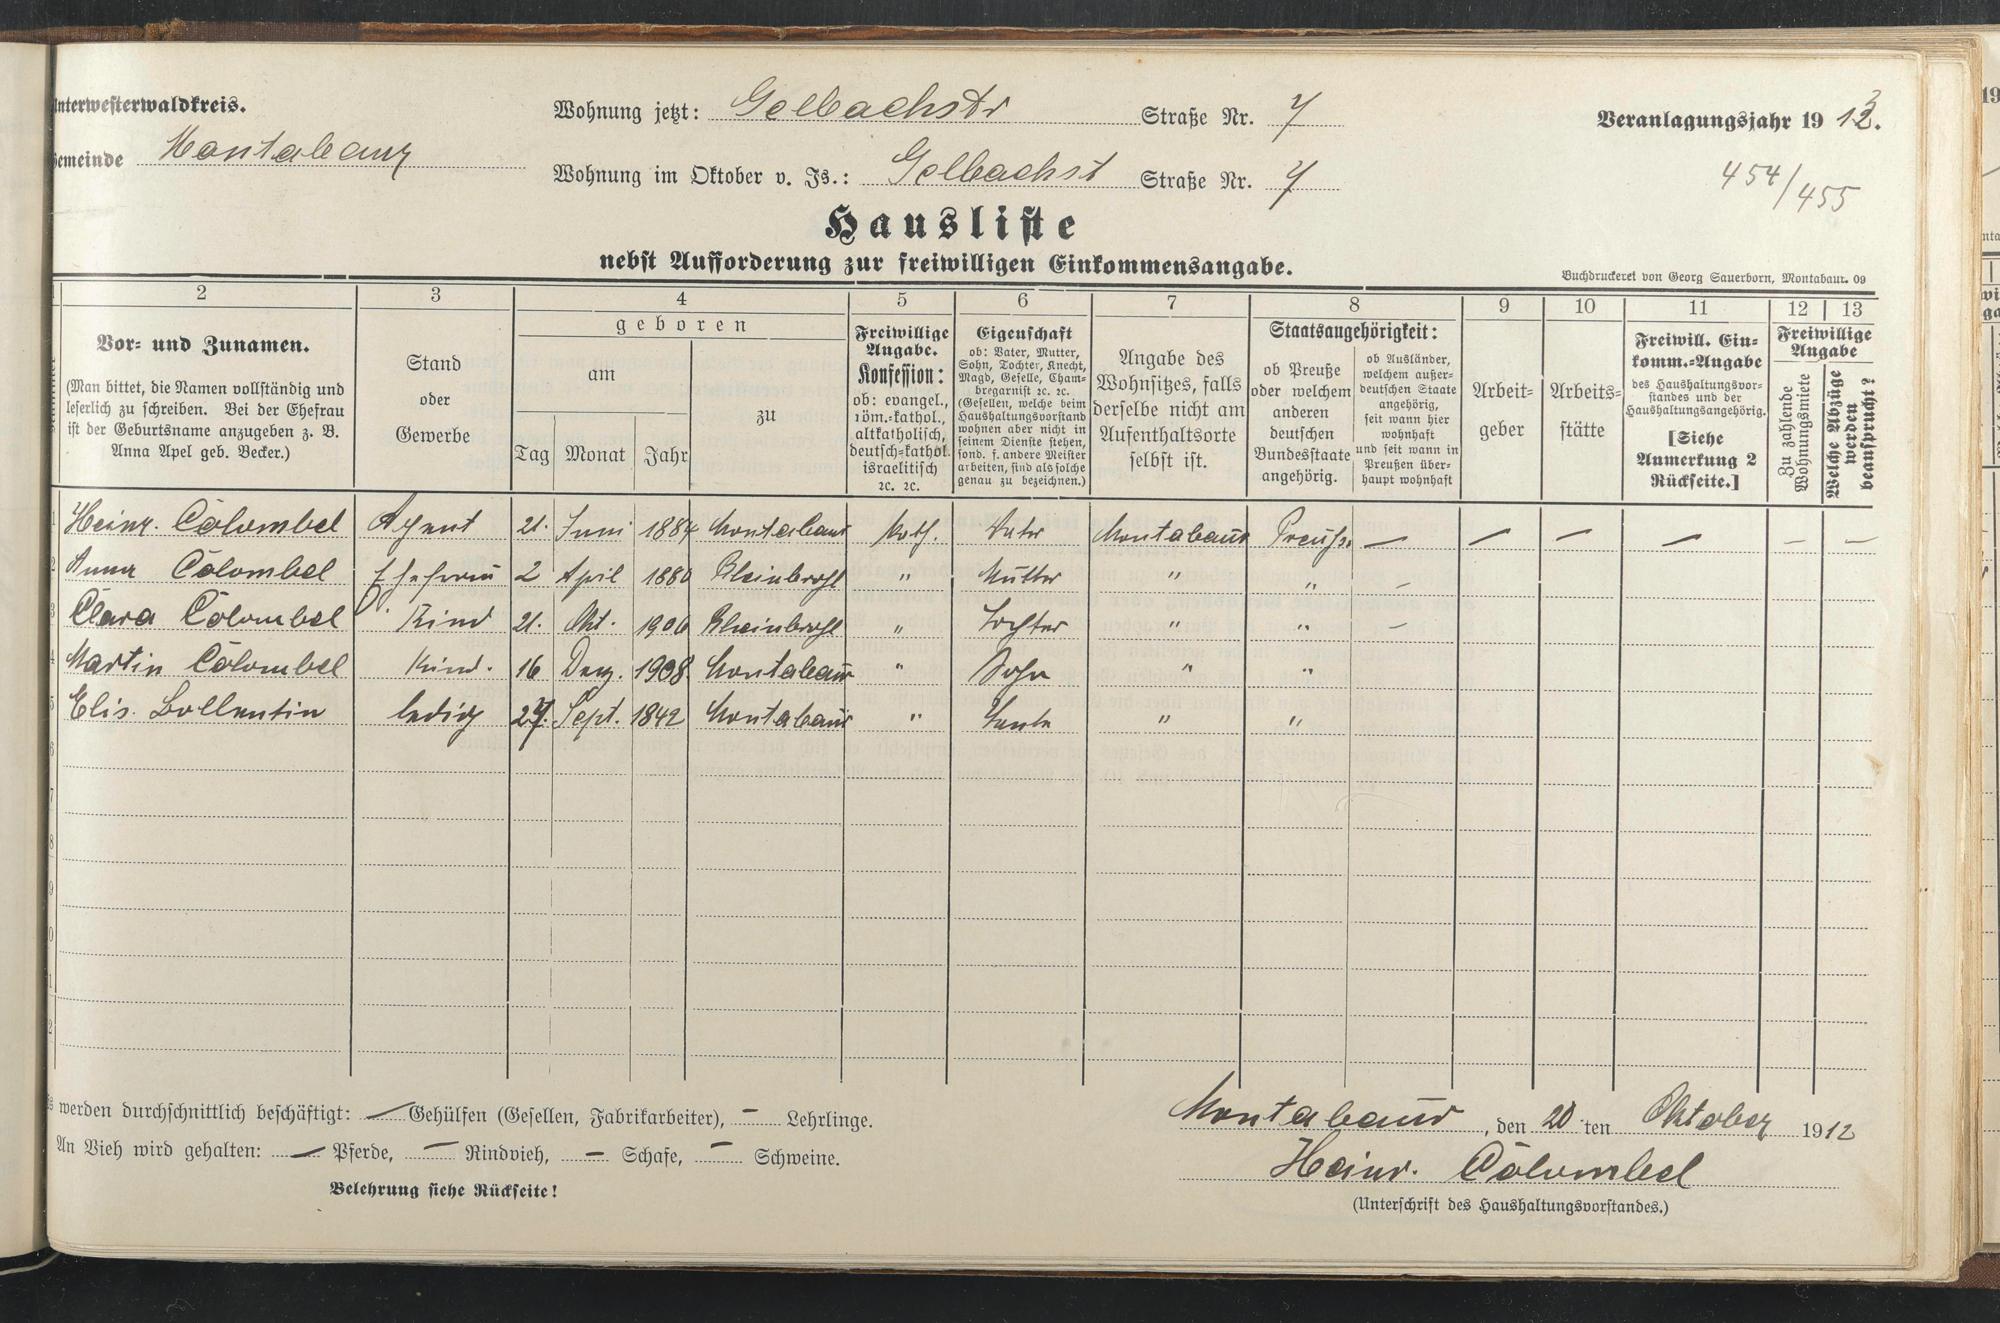 Unterwesterwaldkreis.
Gemeinde Montabaur
Wohnung jetzt: Gelbachstr Straße Nr. 7
Wohnung im Oktober v. Js.: Gelbachst Straße Nr. 7
Veranlagungsjahr 19 13.
454/455
Hausliste
nebst Aufforderung zur freiwilligen Einkommensangabe.
Buchdruckerei von Georg Sauerborn, Montabaur. 09
2 3 4 5 6 7 8 9 10 11 12 13
Vor- und Zunamen.
(Man bittet, die Namen vollständig und
leserlich zu schreiben. Bei der Ehefrau
ist der Geburtsname anzugeben z. B.
Anna Apel geb. Becker.)
Stand
oder
Gewerbe
geboren
am
Tag Monat Jahr
zu
Freiwillige
Angabe.
Konfession:
ob: evangel.,
röm.-kathol.,
altkatholisch,
deutsch-kathol.
israelitisch
2c. 2c.
Eigenschaft
ob: Vater, Mutter,
Sohn, Tochter, Knecht,
Magd, Geselle, Cham-
bregarnist 2c. 2c.
(Gesellen, welche beim
Haushaltungsvorstand
wohnen aber nicht in
seinem Dienste stehen,
sond. f. andere Meister
arbeiten, sind als solche
genau zu bezeichnen.)
Angabe des
Wohnsitzes, falls
derselbe nicht am
Aufenthaltsorte
selbst ist.
Staatsangehörigkeit:
ob Preuße
oder welchem
anderen
deutschen
Bundesstaate
angehörig.
ob Ausländer,
welchem außer-
deutschen Staate
angehörig,
seit wann hier
wohnhaft
und seit wann in
Preußen über-
haupt wohnhaft
Arbeit-
geber
Arbeits-
stätte
Freiwill. Ein-
komm.-Angabe
des Haushaltungsvor-
standes und der
Haushaltungsangehörig.
[Siehe
Anmerkung 2
Rückseite.]
Freiwillige
Angabe
Zu zahlende
Wohnungsmiete
Welche Abzüge
werden
beansprucht?
1 Heinr. Colombel Agent 21. Juni 1884 Montabaur Kath. Vater Montabaur Preuße — — — — — —
2 Anna Colombel Ehefrau 2 April 1880 Rheinbrohl " Mutter " " —
3 Clara Colombel Kind 21. Okt. 1906 Rheinbrohl " Tochter " " —
4 Martin Colombel Kind. 16 Dez. 1908 Montabaur " Sohn " "
5 Elis. Bollentin ledig 27. Sept. 1842 Montabaur " Tante " "
6
7
8
9
0
1
2
werden durchschnittlich beschäftigt: — Gehülfen (Gesellen, Fabrikarbeiter), — Lehrlinge.
An Vieh wird gehalten: — Pferde, — Rindvieh, — Schafe, — Schweine.
Belehrung siehe Rückseite!
Montabaur, den 20 ten Oktober 1912
Heinr. Colombel
(Unterschrift des Haushaltungsvorstandes.)